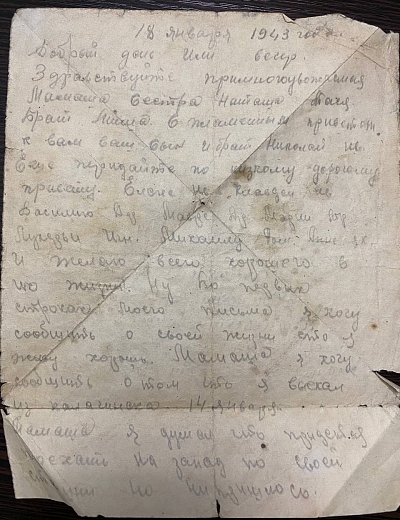 18 января 1943 года.
Добрый день или вечер.
Здравствуйте примногоуважаемая
Мамаша Сестра Наташа Таня
Брат Миша С пламенным приветом
к вам ваш сын и брат Николай
Еще передайте по низкому дорогому
привету. Елене
Василию
Михаилу
И желаю всего хорошего в
жизни. Ну во первых
строках моего письма я хочу
сообщить о своей жизни что я
живу хорошо. Мамаша я хочу
сообщить о том что я выехал
из 14 января
Мамаша я думал что придется
поехать на запад по своей
но не пришлось.